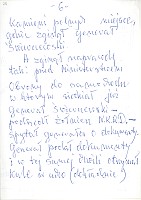 - 6 -
Kamieni polnych miejsce,
gdzie zginął Generał
Świerczewski
A zginął naprawdę
tak: pod Ministerstwem
Obrony do samochodu
w którym siedział już
Generał Świerczewski -
podszedł żołnierz K.B.W. -
spytał generała o dokumenty
Generał podał dokumenty
i w tej samej chwili otrzymał
kulę w udo (dokładnie